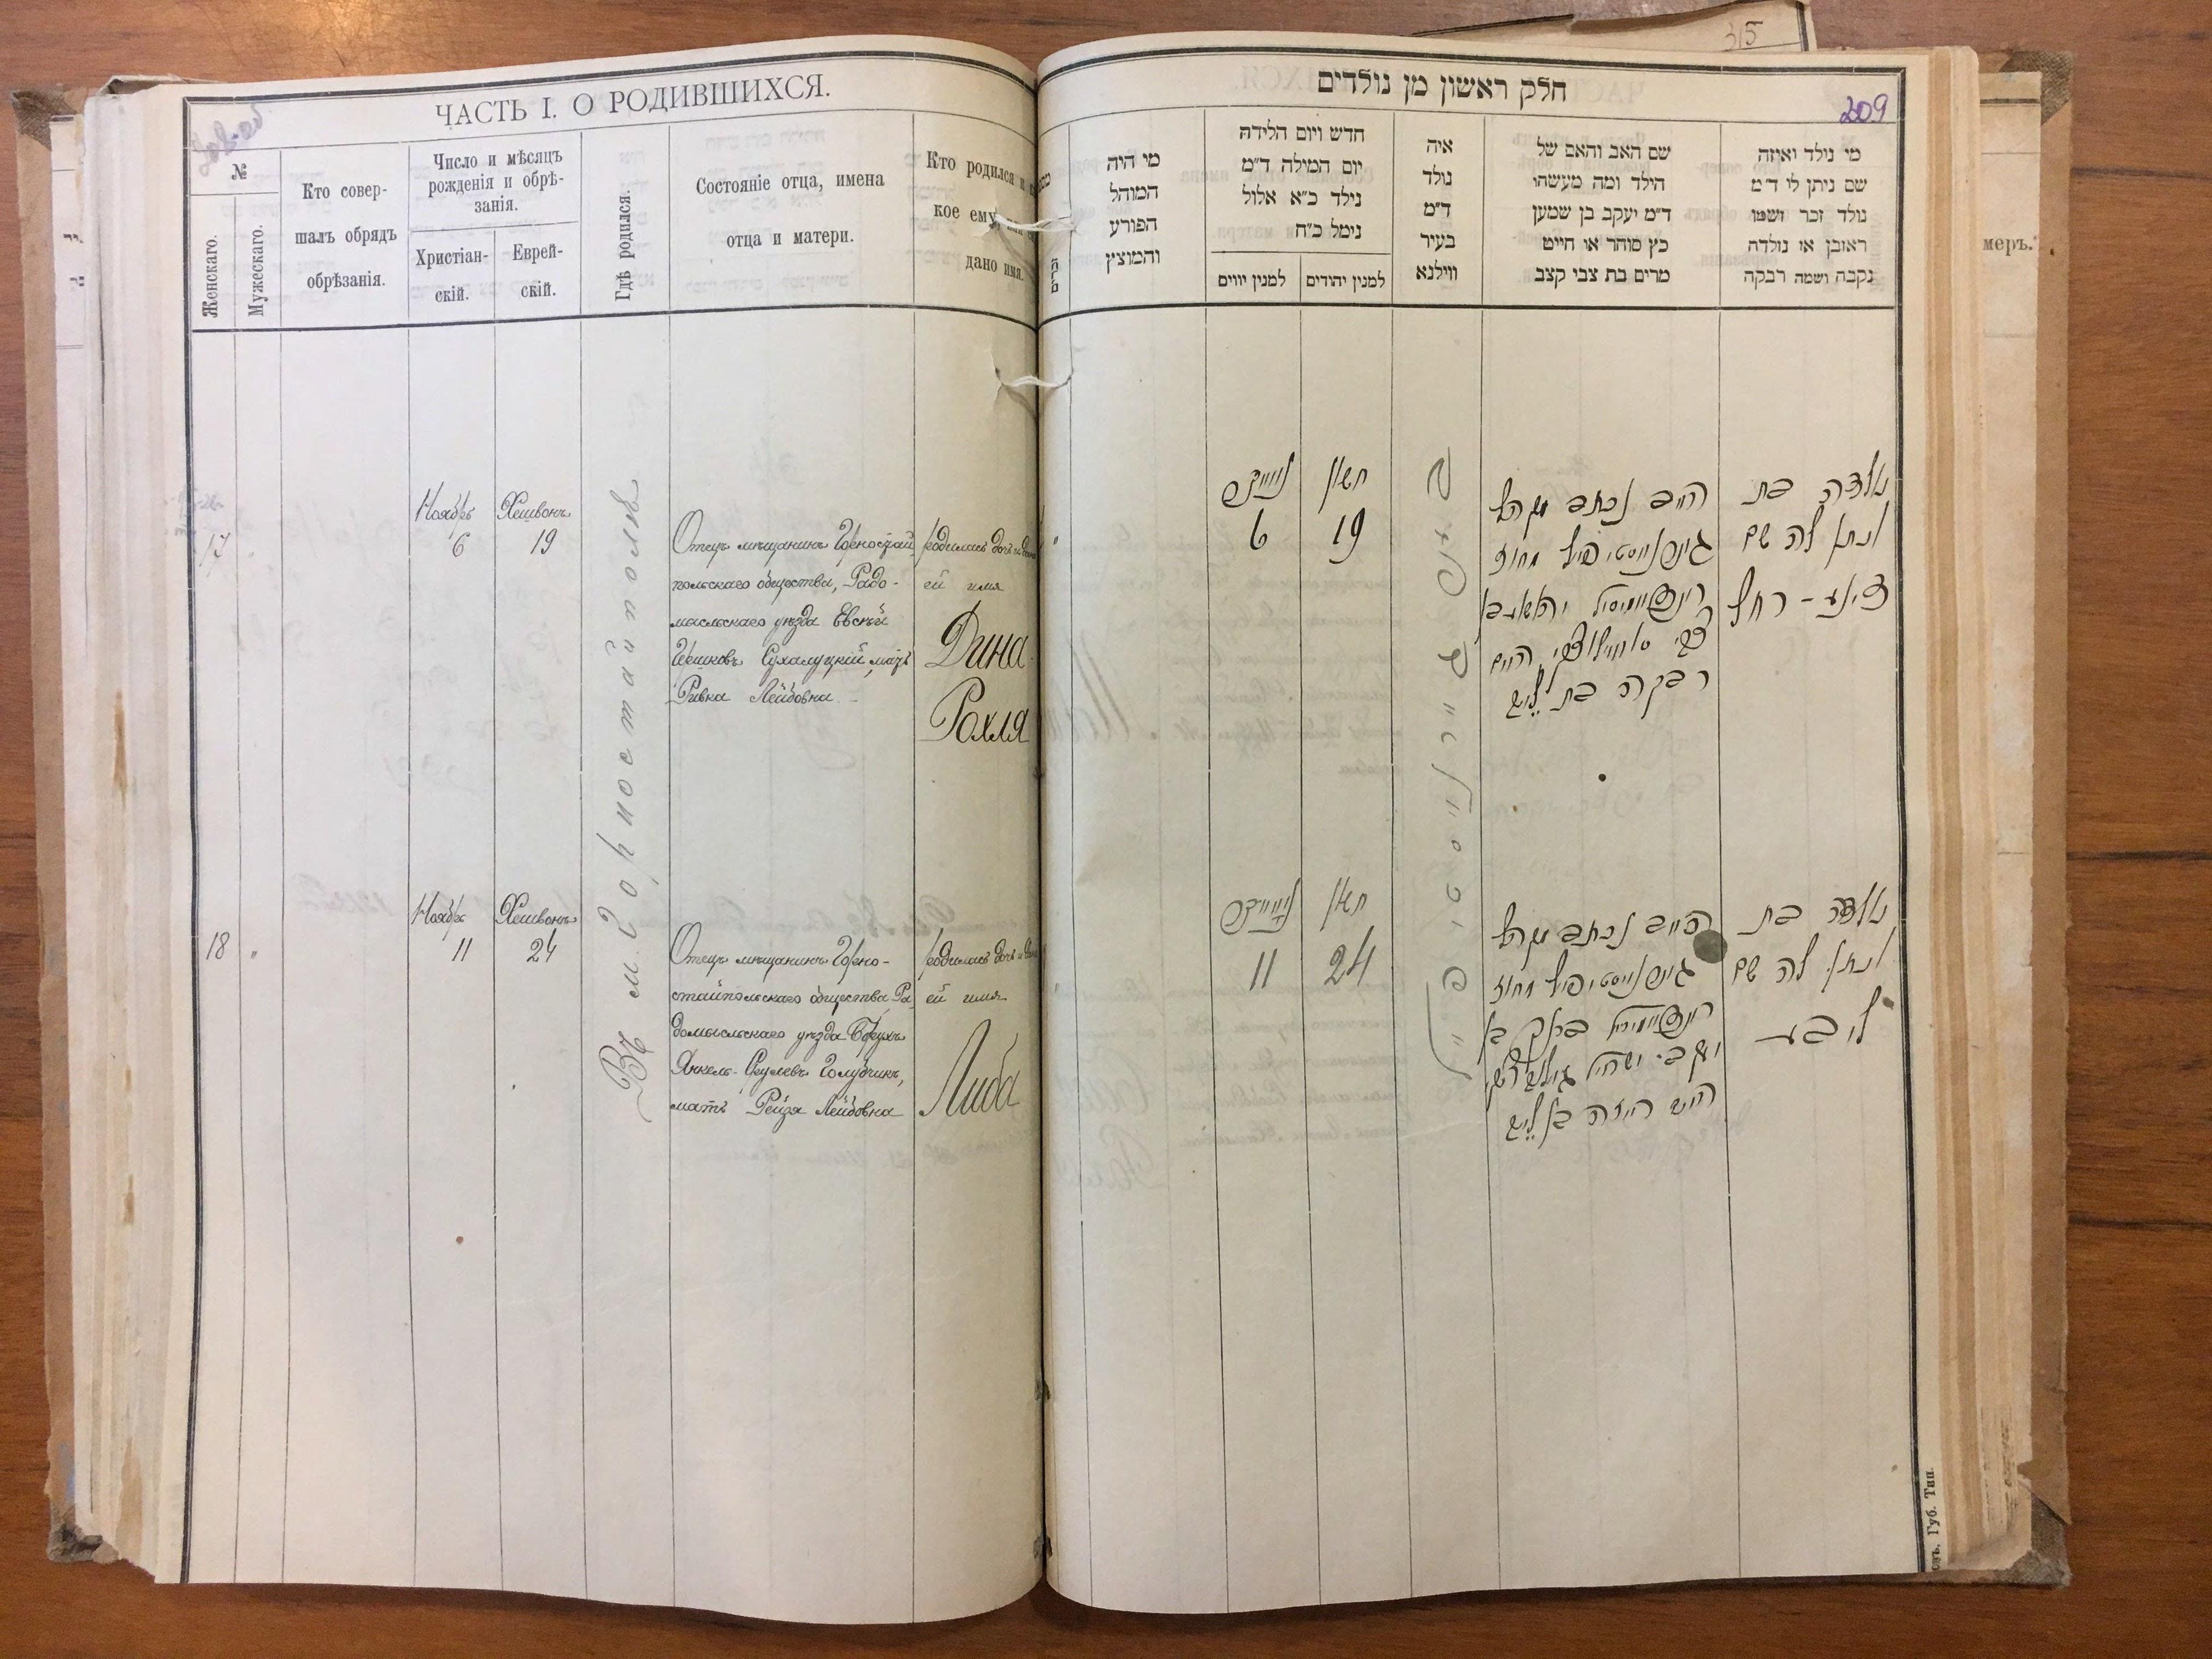 ЧАСТЬ I. О РОДИВШИХСЯ.
№
Женскаго.
Мужескаго.
Кто совер-
шалъ обрядъ
обрѣзанія.
Число и мѣсяцъ
рожденія и обрѣ-
занія.
Христіан-
скій.
Еврей-
скій.
Гдѣ родился.
Состояніе отца, имена
отца и матери.
Кто родился и
кое ему
дано имя.
17
Ноябрь
6
Хешвонъ
19
Отецъ мѣщанинъ Горностай
польскаго общества, Радо-
мысльскаго уѣзда Евсей
Гершковъ Сухалуцкій, мать
Ривка Лейбовна
родилась дочь
ей имя
Дина
Рохля
Въ м. Горностайполѣ
18
Ноябрь
11
Хешвонъ
24
Отецъ мѣщанинъ Горно-
стайпольскаго общества Ра
домысльскаго уѣзда Борухъ
Янкель-Срулевъ Голубчикъ,
мать Рейзя Лейбовна
родилась дочь
ей имя
Либа
315
חלק ראשון מן נולדים
209
מי נולד ואיזה
שם ניתן לי ד״מ
נולד זכר ושמו
ראובן או נולדה
נקבה ושמה רבקה
שם האב והאם של
הילד ומה מעשהו
ד״מ יעקב בן שמעון
כץ סוחר או חייט
מרים בת צבי קצב
איה
נולד
ד״מ
בעיר
ווילנא
חדש ויום הלידה
יום המילה ד״מ
נילד כ״א אלול
נימל כ״ח
למנין יהודים
למנין יווים
מי היה
המוהל
הפורע
והמוצץ
נולדה בת
ונתן לה שם
דינע - רחל
האב נכתב מקהל
רבקה בת לייב
חשון
19
6
נולדה בת
ונתן לה שם
ליבע
האב נכתב מקהל
חשון
24
11
меръ.
Губ. Тип.